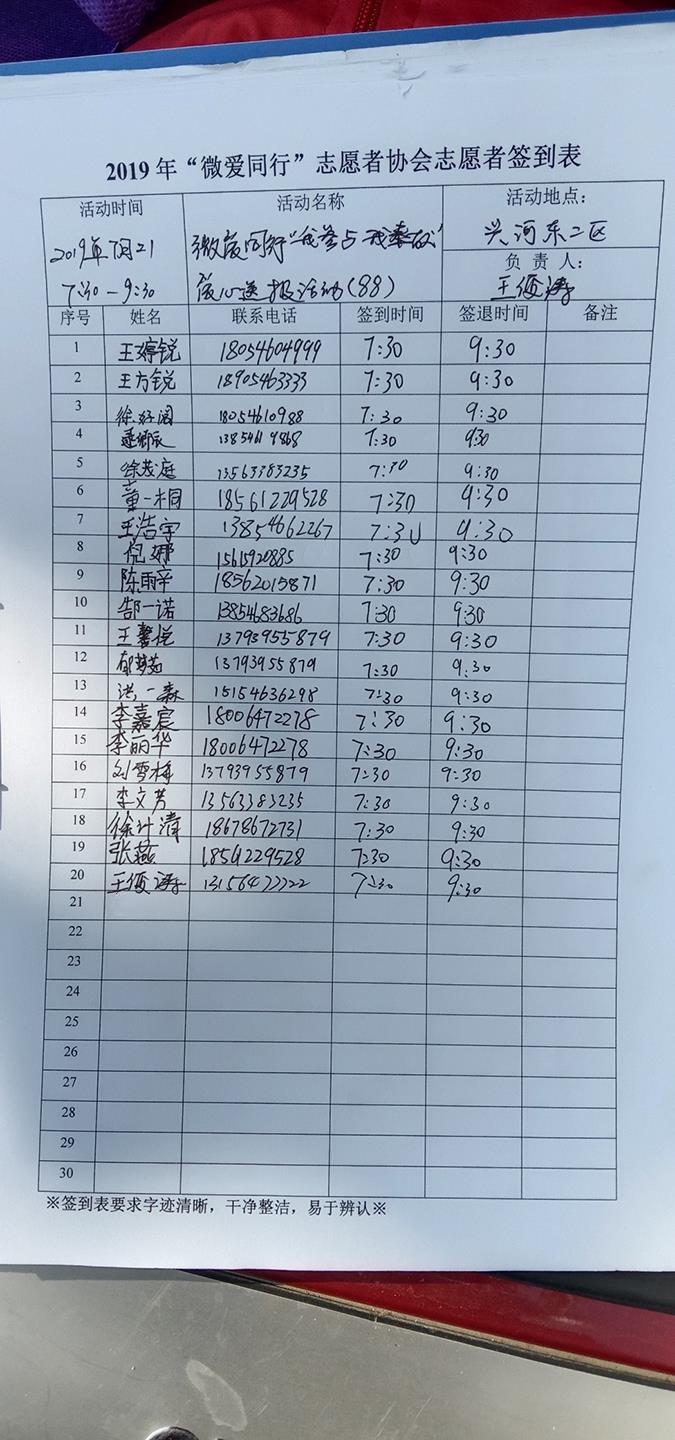 2019年“微爱同行”志愿者协会志愿者签到表
活动时间 活动名称 活动地点：
2019年7月21 微爱同行“我参与 我奉献” 兴河东二区
负责人：
7:30-9:30 爱心送报活动(88) 王
序号 姓名 联系电话 签到时间 签退时间 备注
1 王婷锐 18054604999 7:30 9:30
2 王方锐 18905463333 7:30 9:30
3 徐好阔 18054610988 7:30 9:30
4 7:30 9:30
5 徐茂庭 13563383235 7:30 9:30
6 董一桐 18561229528 7:30 9:30
7 王浩宇 13854662267 7:30 9:30
8 倪娜 15615920885 7:30 9:30
9 陈雨辛 18562015871 7:30 9:30
10 郜一诺 13854683686 7:30 9:30
11 王馨悦 13793955879 7:30 9:30
12 郁梦茹 13793955879 7:30 9:30
13 洪一森 15154636298 7:30 9:30
14 李嘉宸 18006472278 7:30 9:30
15 李丽华 18006472278 7:30 9:30
16 刘雪梅 13793955879 7:30 9:30
17 李文芳 13563383235 7:30 9:30
18 徐计清 18678672731 7:30 9:30
19 张燕 7:30 9:30
20 王 7:30 9:30
21
22
23
24
25
26
27
28
29
30
※签到表要求字迹清晰，干净整洁，易于辨认※